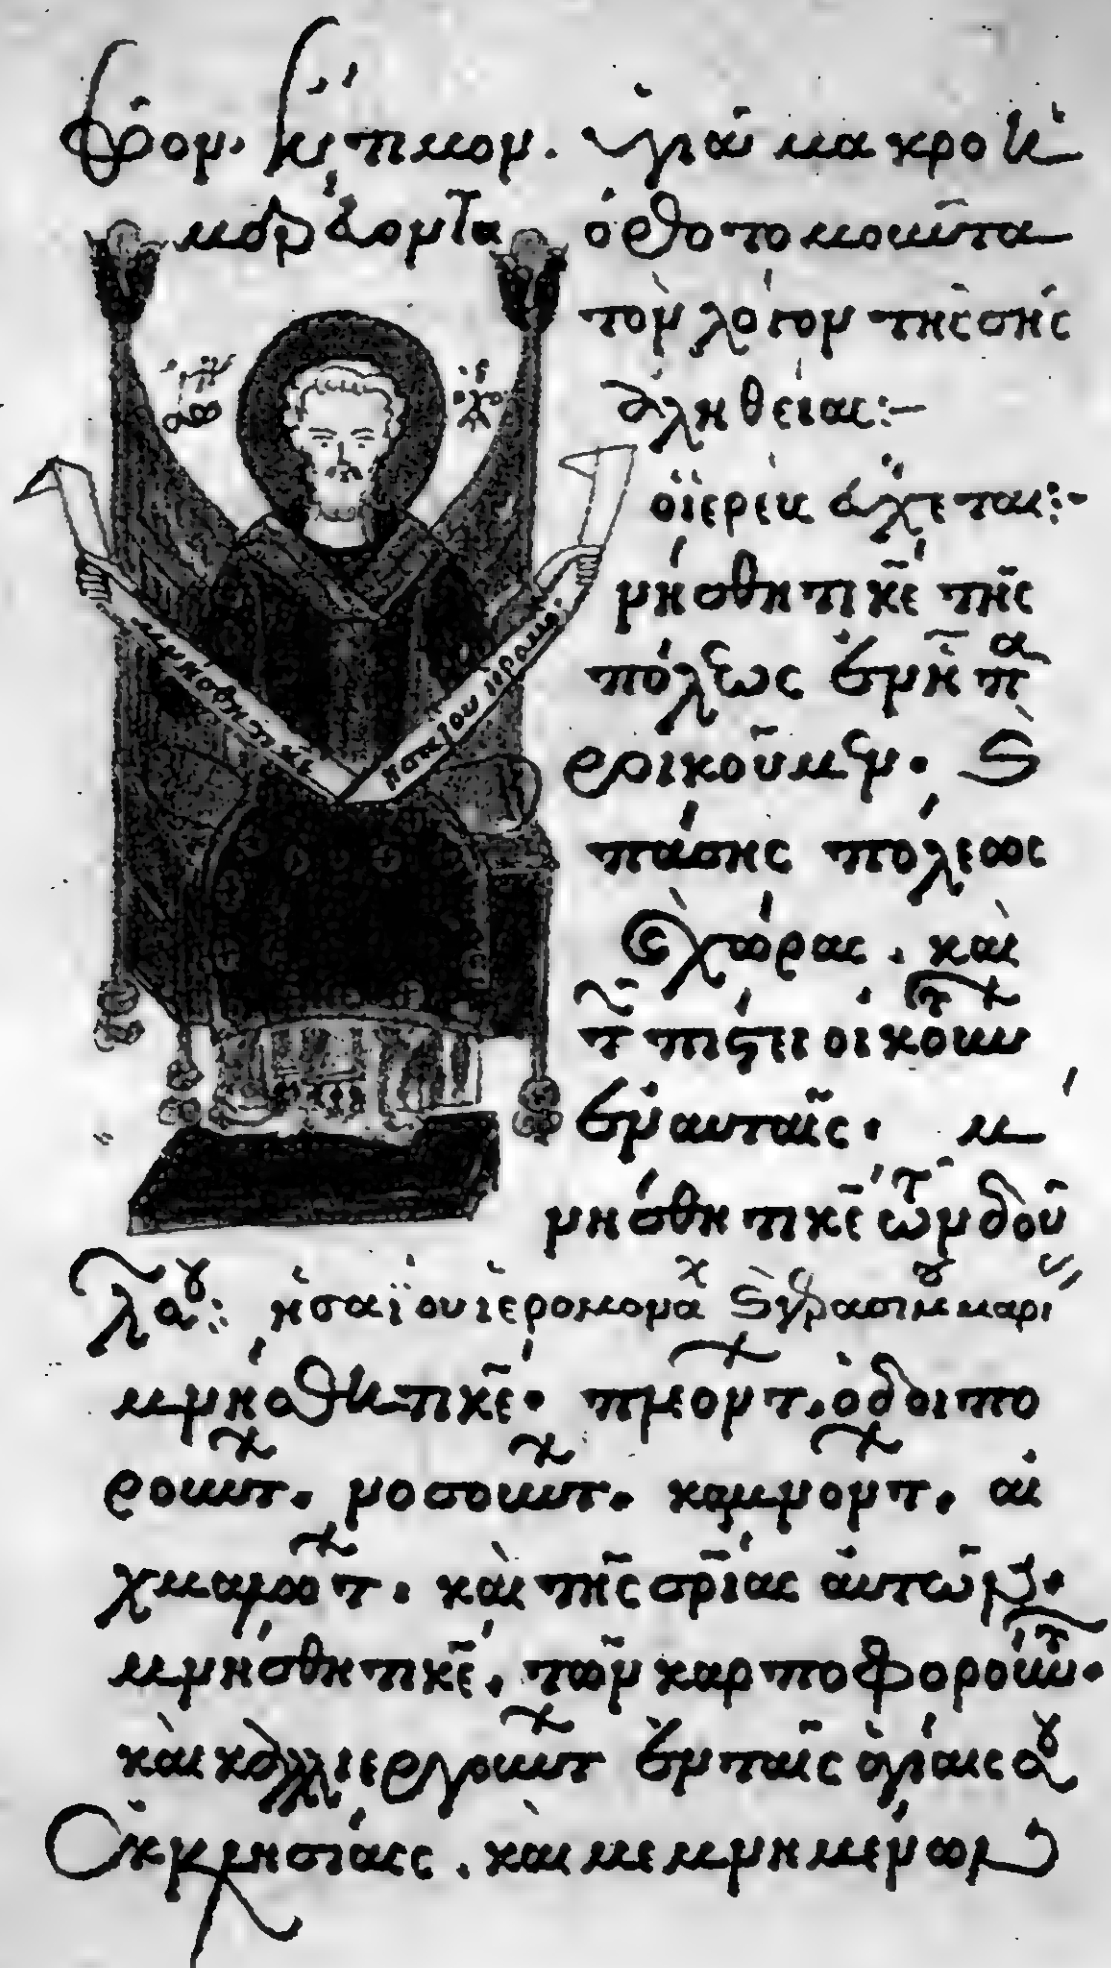 φρον. ἔντιμον. ὑγιᾶ μακροη
μερεύοντα ὀρθοτομοῦντα
τὸν λόγον τῆς σῆς
ἀληθείας:—
ὁ ἱερεὺς εὔχεται:-
μνήσθητι κε̄ τῆς
πόλεως ἐν ἧ πα
ροικοῦμεν. καὶ
πάσης πόλεως
καὶ χώρας. καὶ
τ πίστει οἰκούντ
ἐν αὐταῖς. μ
νήσθητι κε̄ τῶν δού
λου: ἡσαΐου ἱερομονα
μνήσθητι κε̄. πλεοντ. ὁδοιπο
ρουντ. νοσουντ. καμνοντ. αἰ
χμαλωτ. καὶ τῆς σρίας αὐτῶν.
μνήσθητι κε̄. τῶν καρποφορουντ.
καὶ καλλιεργουντ ἐν ταῖς ἁγίαις σου
ἐκκλησίαις. καὶ μεμνημένων
μνήσθητι κε
ησαϊου ιερομο